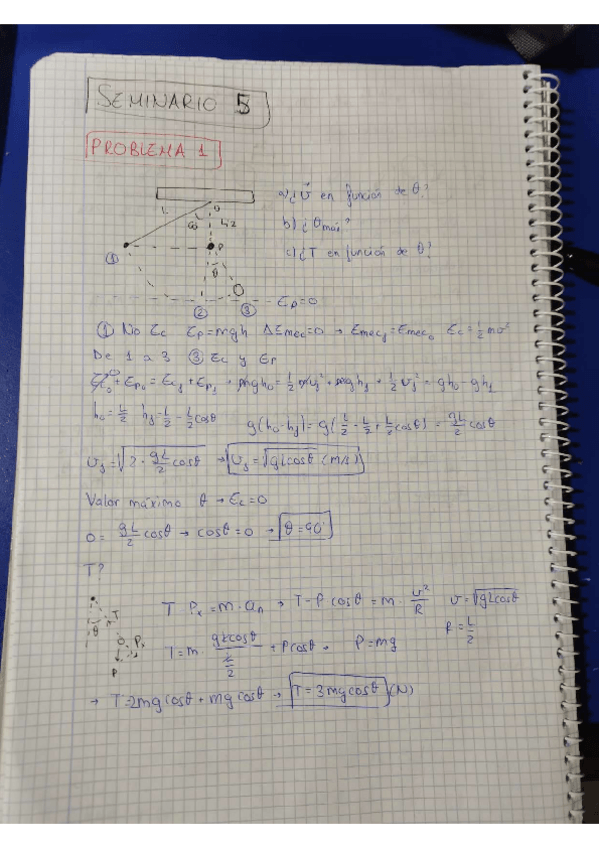 SEMINARIO 5
PROBLEMA 1
a) ¿ v⃗ en función de θ?
b) ¿ θmáx?
c) ¿ T en función de θ?
L
O
60
L/2
P
θ
①
②
③
Ep=0
① No Ec Ep=mgh ΔEmec=0 → Emecf=Emec0 Ec=½mv²
De 1 a 3 ③ Ec y Ep
Ec0 + Ep0 = Ecf + Epf → mgh0 = ½mvf² + mghf → ½vf² = gh0 - ghf
h0=L/2 hf=L/2 - L/2 cosθ g(h0-hf)= g(L/2 - L/2 + L/2 cosθ) = gL/2 cosθ
vf=√(2·gL/2 cosθ) → vf=√(gLcosθ) (m/s)
Valor máximo θ → Ec=0
0 = gL/2 cosθ → cosθ=0 → θ=90
T?
θ
T
Px
P
T - Px = m·an → T-Pcosθ = m·v²/R v=√(gLcosθ)
R=L/2
T=m·gLcosθ/(L/2) + Pcosθ P=mg
→ T=2mgcosθ + mgcosθ → T=3mgcosθ (N)